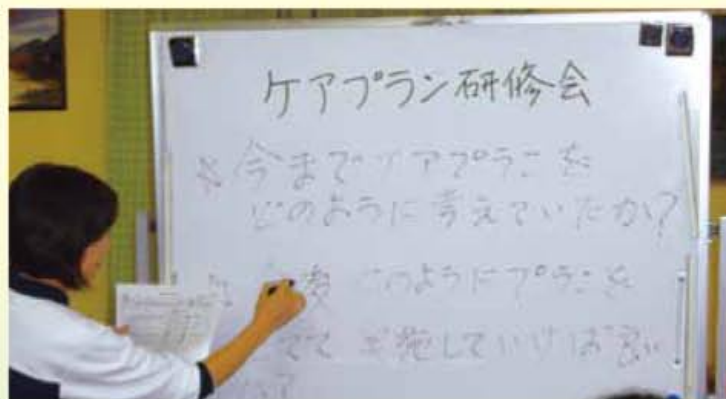 ケアプラン研修会
※今までケアプランを
どのように考えていたか?
どのようにプランを
てて実施していけば良い